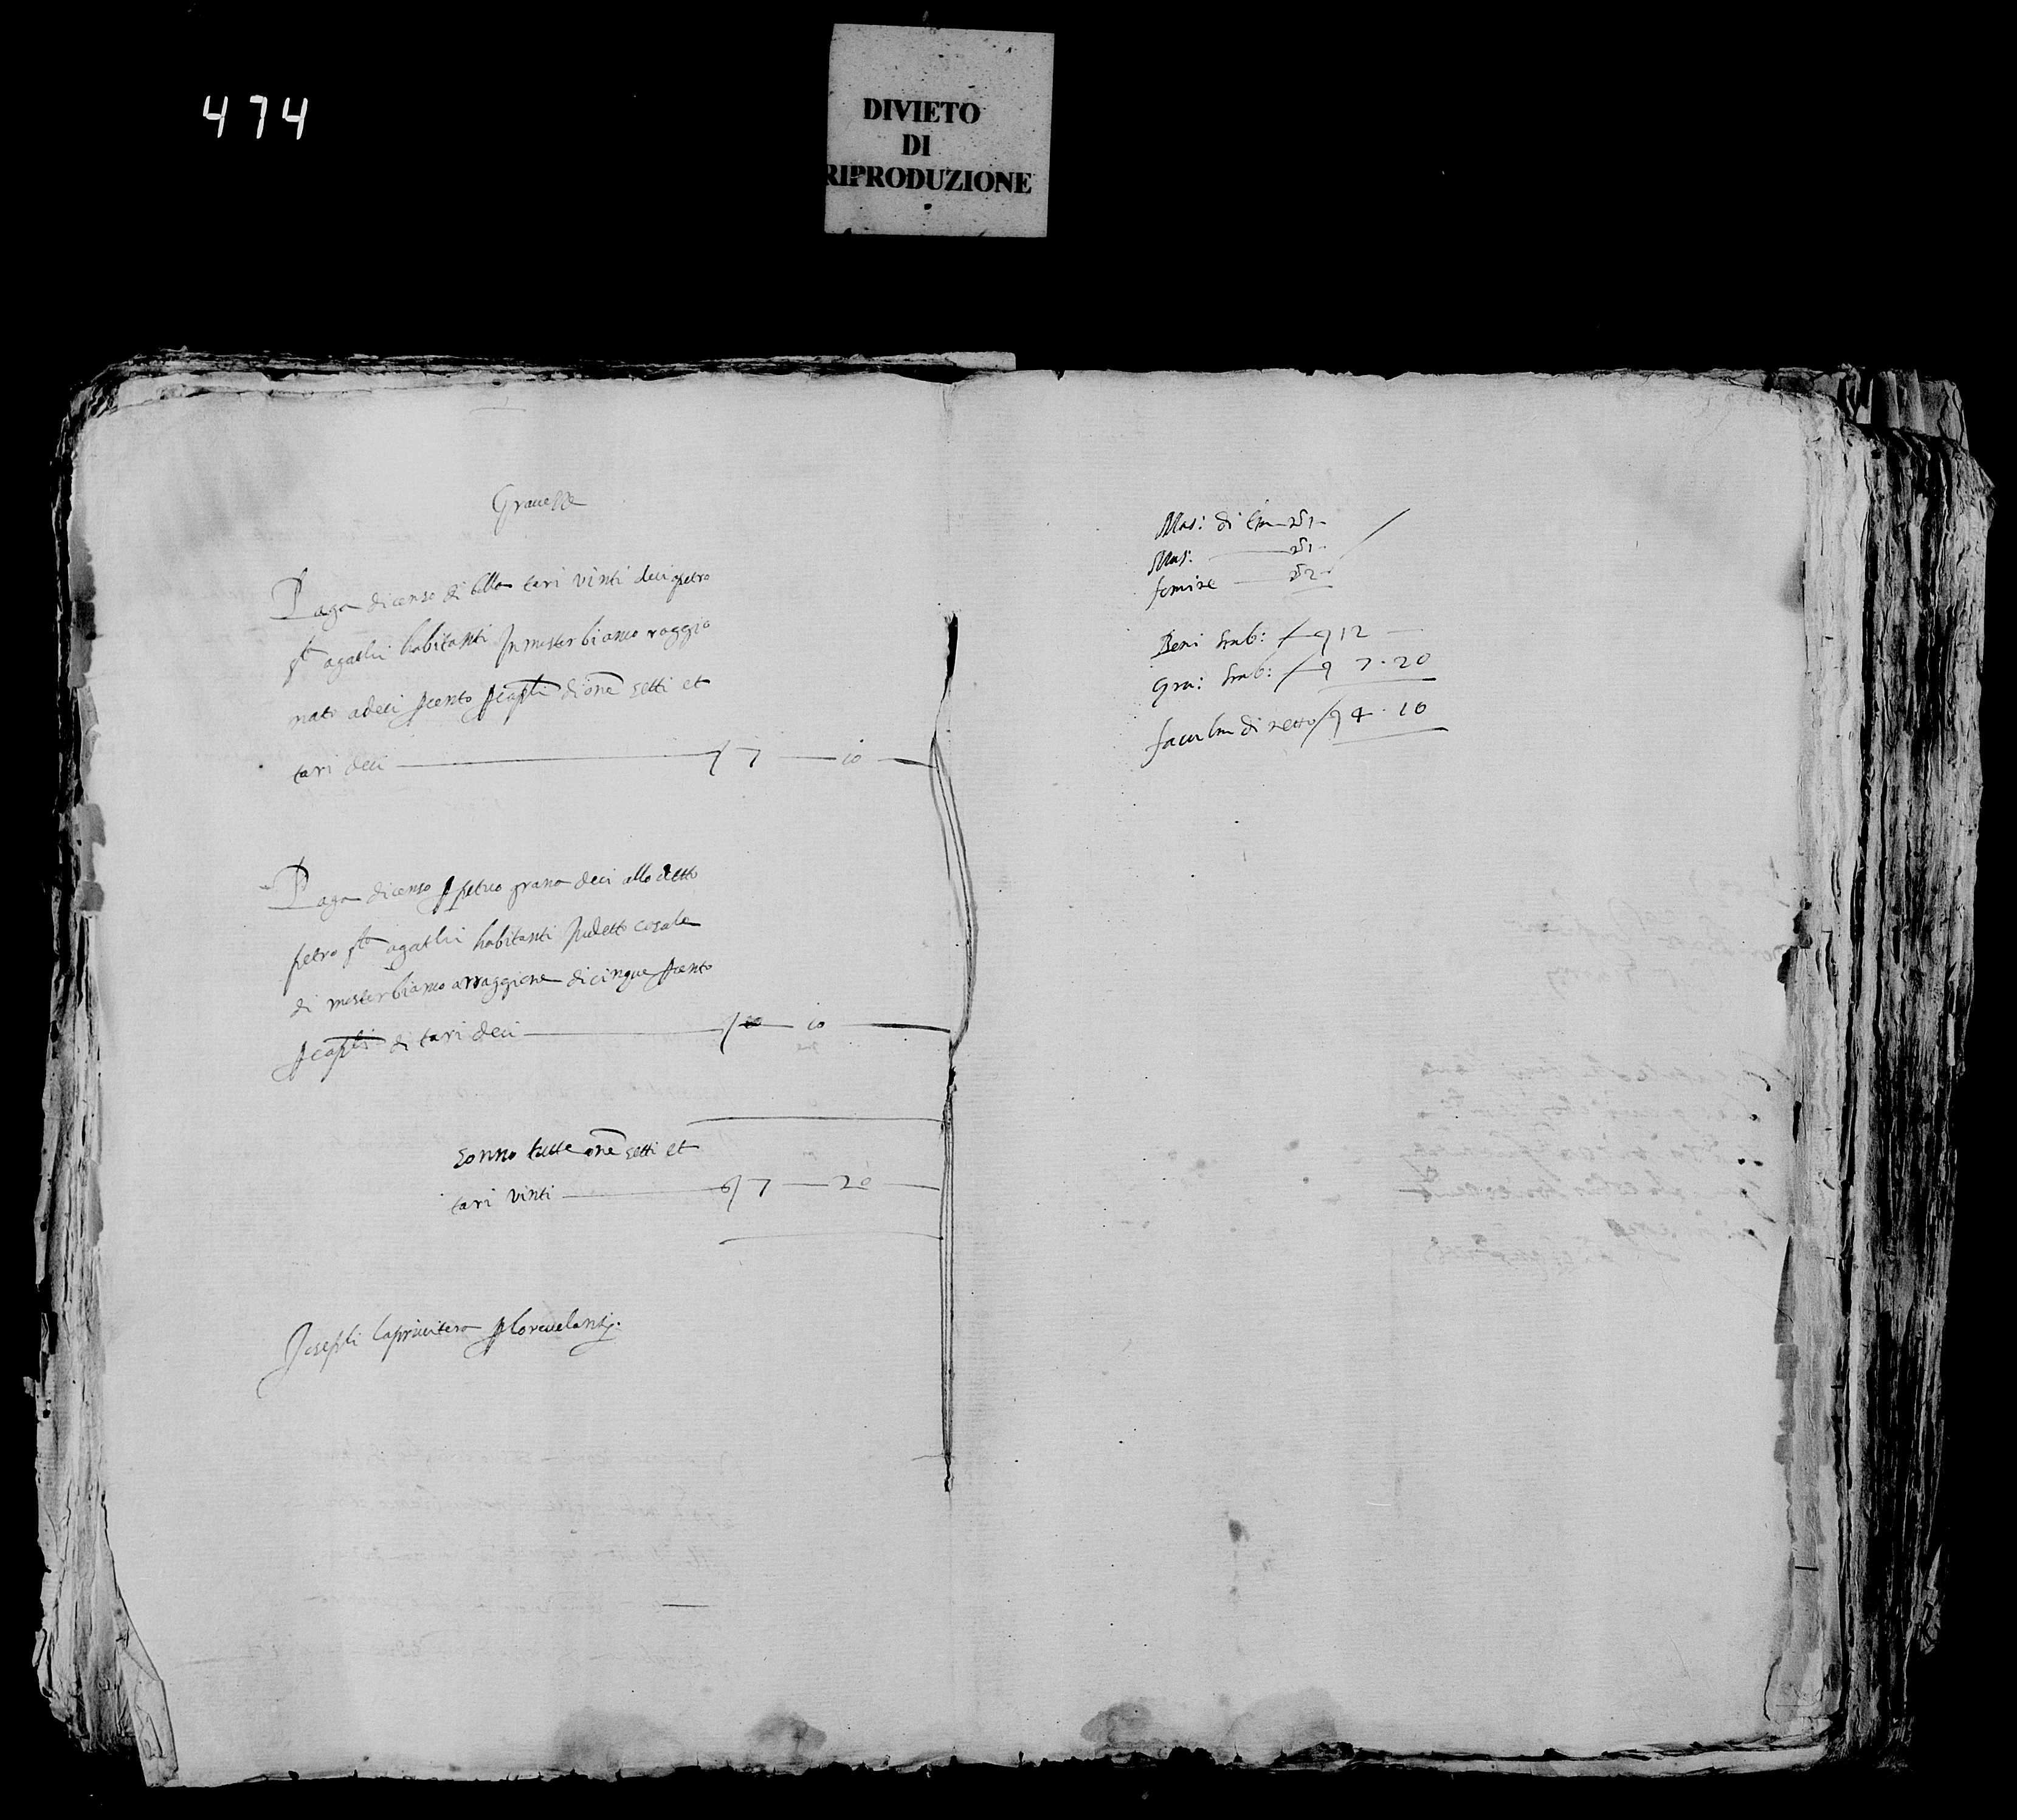 474
DIVIETO
DI
RIPRODUZIONE
Gravezze
Paga di censo di bolla tari vinti deci pietro
agathi habitanti In misterbianco raggio
nati a deci per cento per capli di onze setti et
tari deci 7 10
Paga di censo perpetuo grana deci allo detto
petro agathi habitanti In detto casale
di misterbianco arraggione di cinque per cento
per capli di tari deci 10
sonno tutte onze setti et
tari vinti 7 20
Joseph laprivitera
Mas: di
Mas:
femine
Beni Stab: 12
Gra: Stab: 7. 20
facultà di netto 4. 10